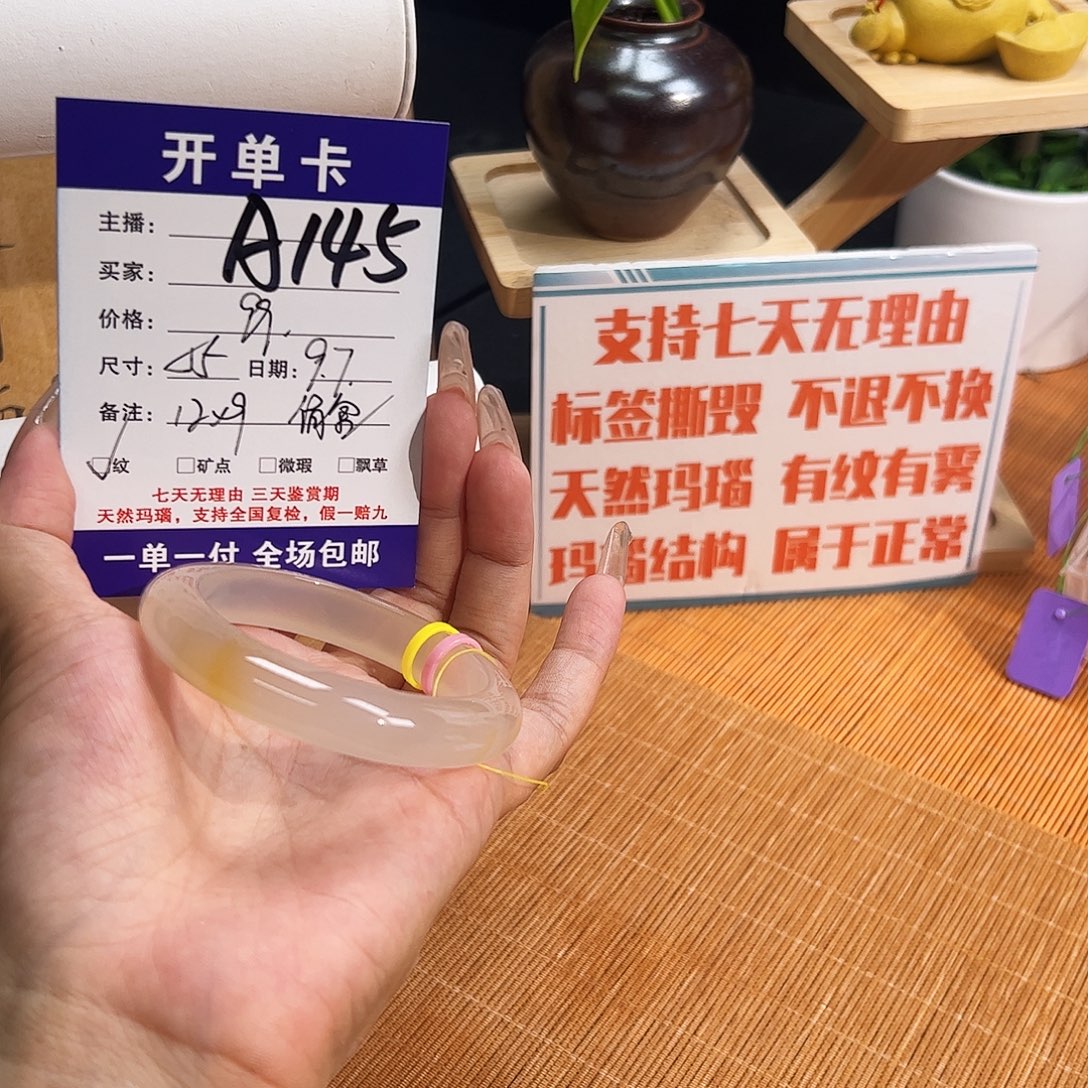 开单卡
主播：
A145
买家：
价格：99.
尺寸：55 日期：9.7.
备注：12x9 俏色
☑纹 □矿点 □微瑕 □飘草
七天无理由 三天鉴赏期
天然玛瑙，支持全国复检，假一赔九
一单一付 全场包邮
支持七天无理由
标签撕毁 不退不换
天然玛瑙 有纹有雾
玛瑙结构 属于正常